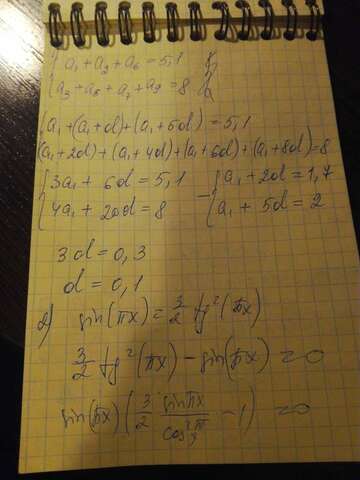 a₁ + a₂ + a₆ = 5,1
a₃ + a₅ + a₇ + a₉ = 8
a₁ + (a₁ + d) + (a₁ + 5d) = 5,1
(a₁ + 2d) + (a₁ + 4d) + (a₁ + 6d) + (a₁ + 8d) = 8
3a₁ + 6d = 5,1 a₁ + 2d = 1,7
4a₁ + 20d = 8 a₁ + 5d = 2
3d = 0,3
d = 0,1
2) sin(πx) = 3/2 tg²(πx)
3/2 tg²(πx) - sin(πx) = 0
sin(πx) (3/2 sinπx/cos²πx - 1) = 0